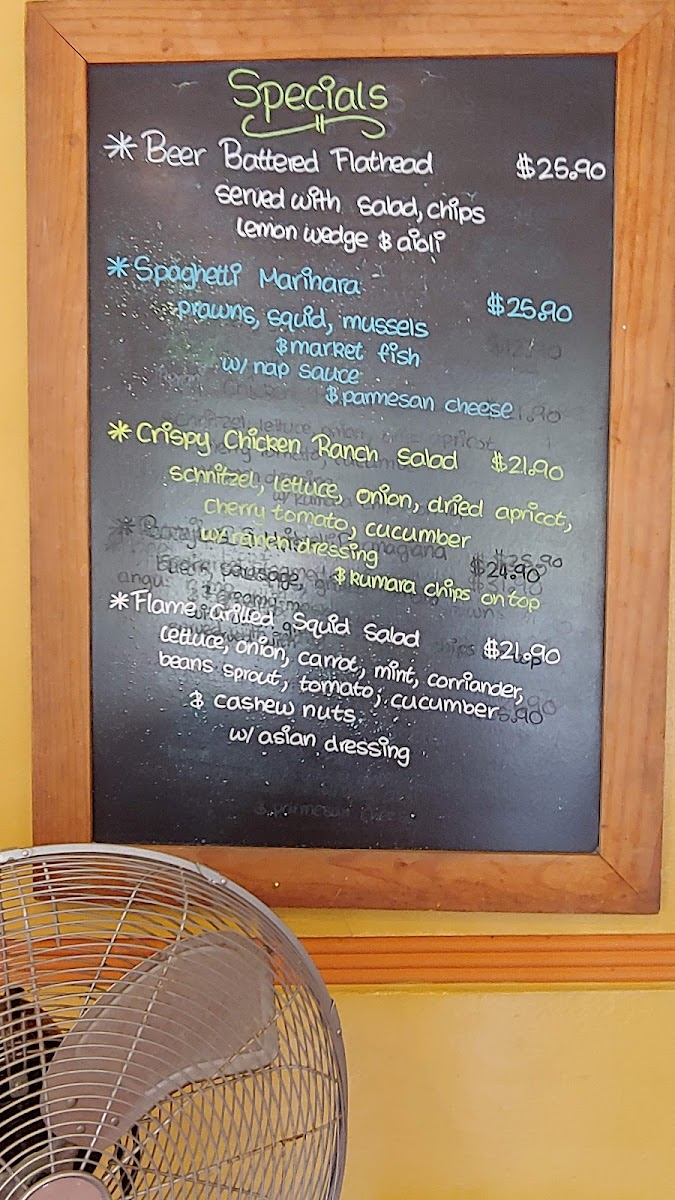 Specials
* Beer Battered Flathead $25.90
served with salad, chips
lemon wedge & aioli
* Spaghetti Marinara $25.90
prawns, squid, mussels
& market fish
w/ nap sauce
& parmesan cheese
* Crispy Chicken Ranch Salad $21.90
schnitzel, lettuce, onion, dried apricot,
cherry tomato, cucumber
w/ ranch dressing
& kumara chips on top
$24.90
* Flame Grilled Squid Salad $21.90
lettuce, onion, carrot, mint, corriander,
beans sprout, tomato, cucumber
& cashew nuts
w/ asian dressing
& parmesan cheese